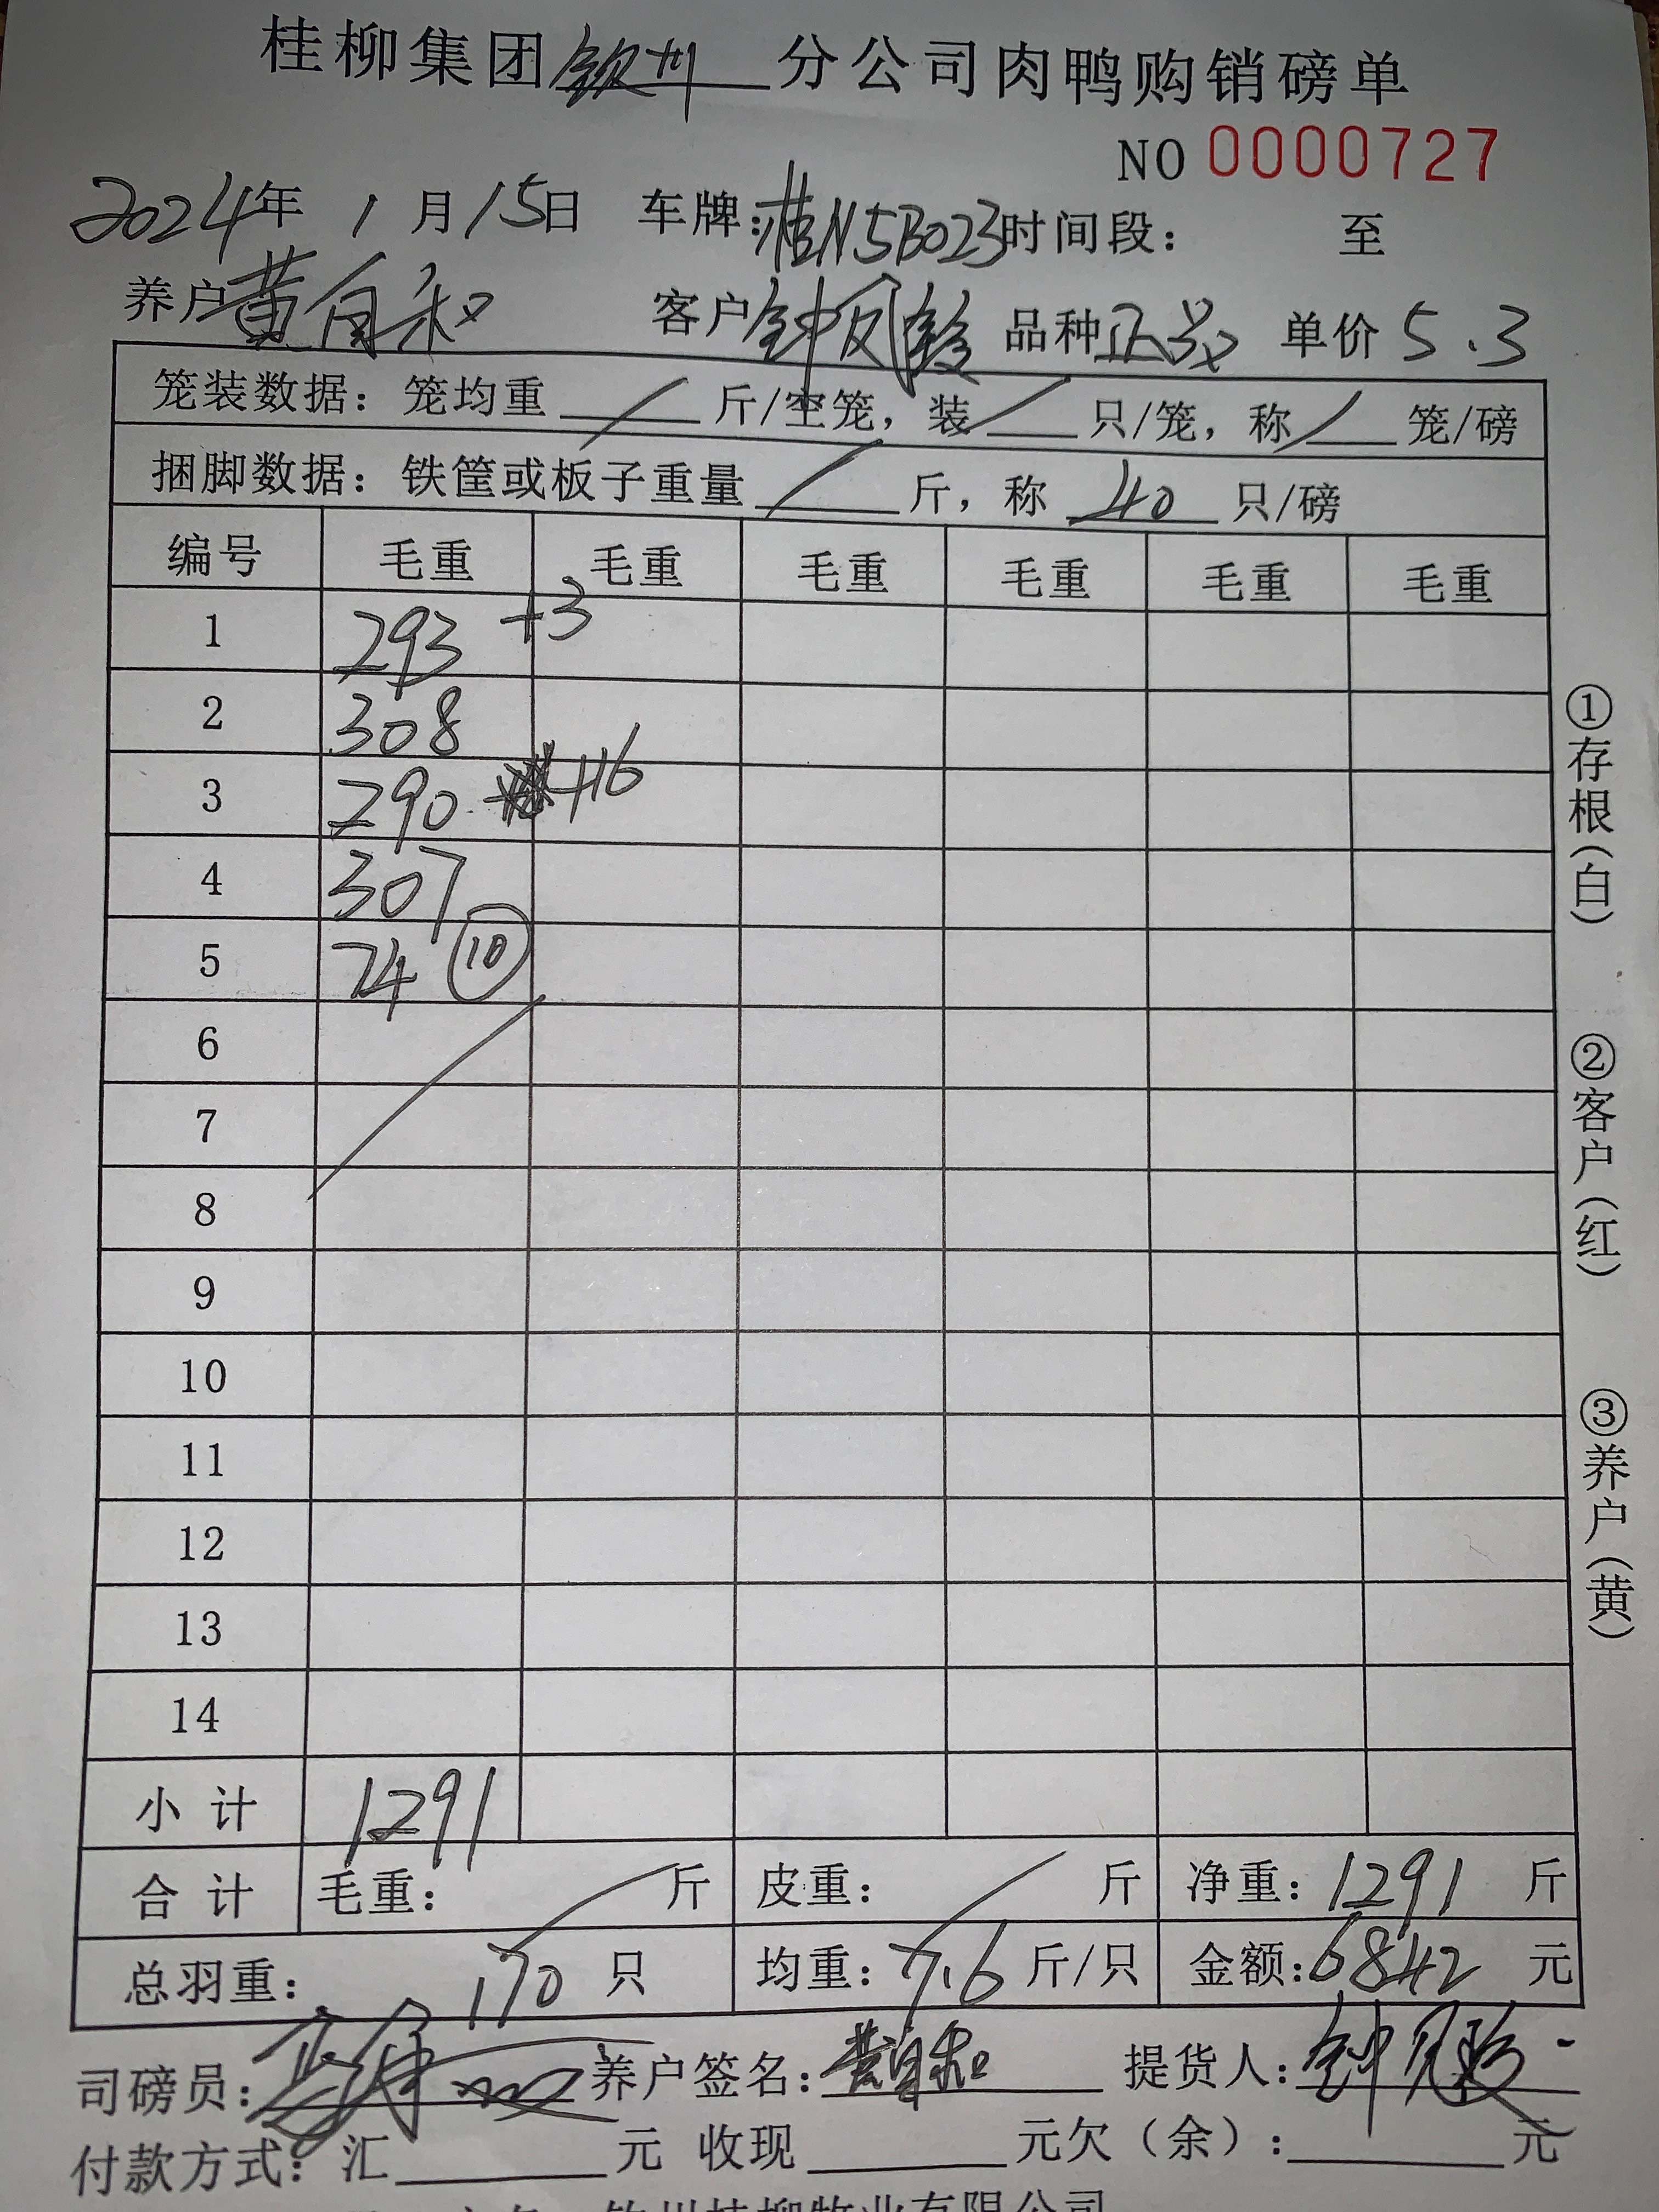 桂柳集团钦州分公司肉鸭购销磅单
NO 0000727
2024年 1 月 15日 车牌:桂N5B023 时间段： 至
养户黄自和 客户钟凤 品种正品 单价 5.3
笼装数据：笼均重 / 斤/空笼，装 / 只/笼，称 / 笼/磅
捆脚数据：铁筐或板子重量 / 斤，称 40 只/磅
编号 毛重 毛重 毛重 毛重 毛重 毛重
1 293 +3
2 308
3 290 +16
4 307
5 74 ⑩
6
7
8
9
10
11
12
13
14
小 计 1291
合 计 毛重： / 斤 皮重： / 斤 净重：1291 斤
总羽重： 170 只 均重：7.6 斤/只 金额:6842 元
司磅员: 养户签名：黄自和 提货人：钟
付款方式：汇 元 收现 元欠（余）： 元
钦州桂柳牧业有限公司
①存根（白）
②客户（红）
③养户（黄）